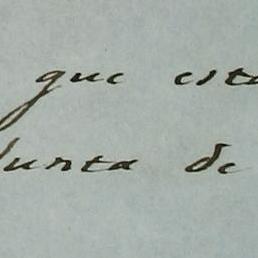 que esta
Junta de